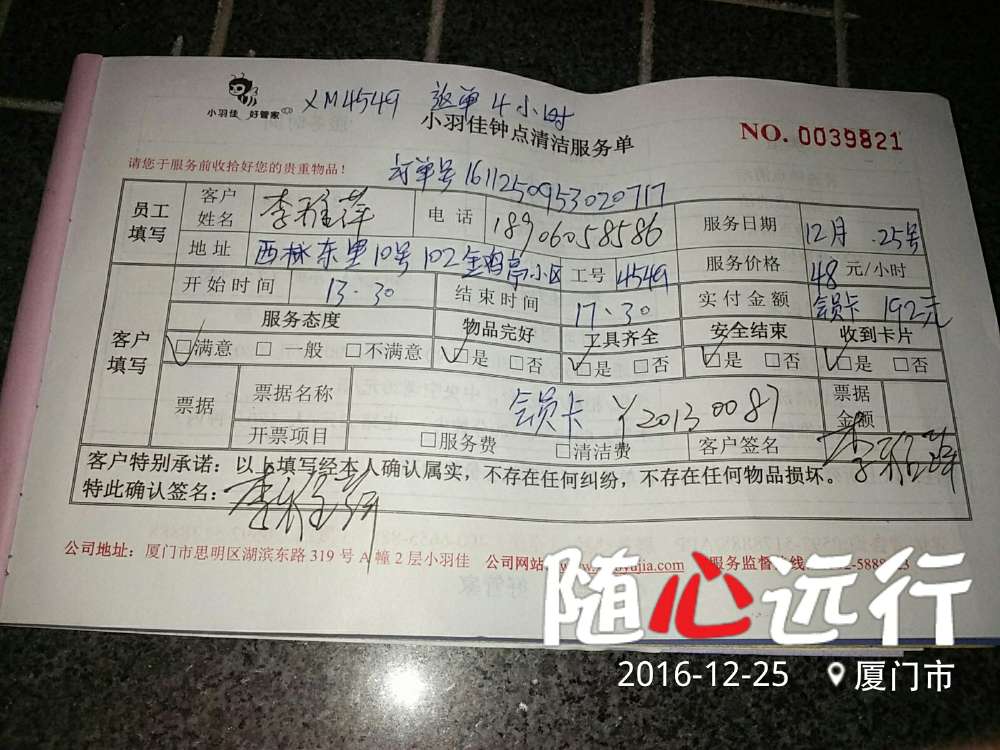 小羽佳 好管家
XM4549 返单4小时
小羽佳钟点清洁服务单
NO. 0039821
请您于服务前收拾好您的贵重物品！
订单号1611250953020717
员工填写 客户姓名 李雅萍 电话 18906058586 服务日期 12月.25号
地址 西林东里10号102金鸡亭小区 工号 4549 服务价格 48元/小时
客户填写 开始时间 13.30 结束时间 17.30 实付金额 会员卡 192元
服务态度 物品完好 工具齐全 安全结束 收到卡片
☑满意 □一般 □不满意 ☑是 □否 ☑是 □否 ☑是 □否 ☑是 □否
票据 票据名称 会员卡 ¥20130087 票据金额
开票项目 □服务费 □清洁费 客户签名 李雅萍
客户特别承诺：以上填写经本人确认属实，不存在任何纠纷，不存在任何物品损坏。
特此确认签名：李雅萍
公司地址：厦门市思明区湖滨东路319号A幢2层小羽佳 公司网站 服务监督热线
随心远行
2016-12-25 厦门市